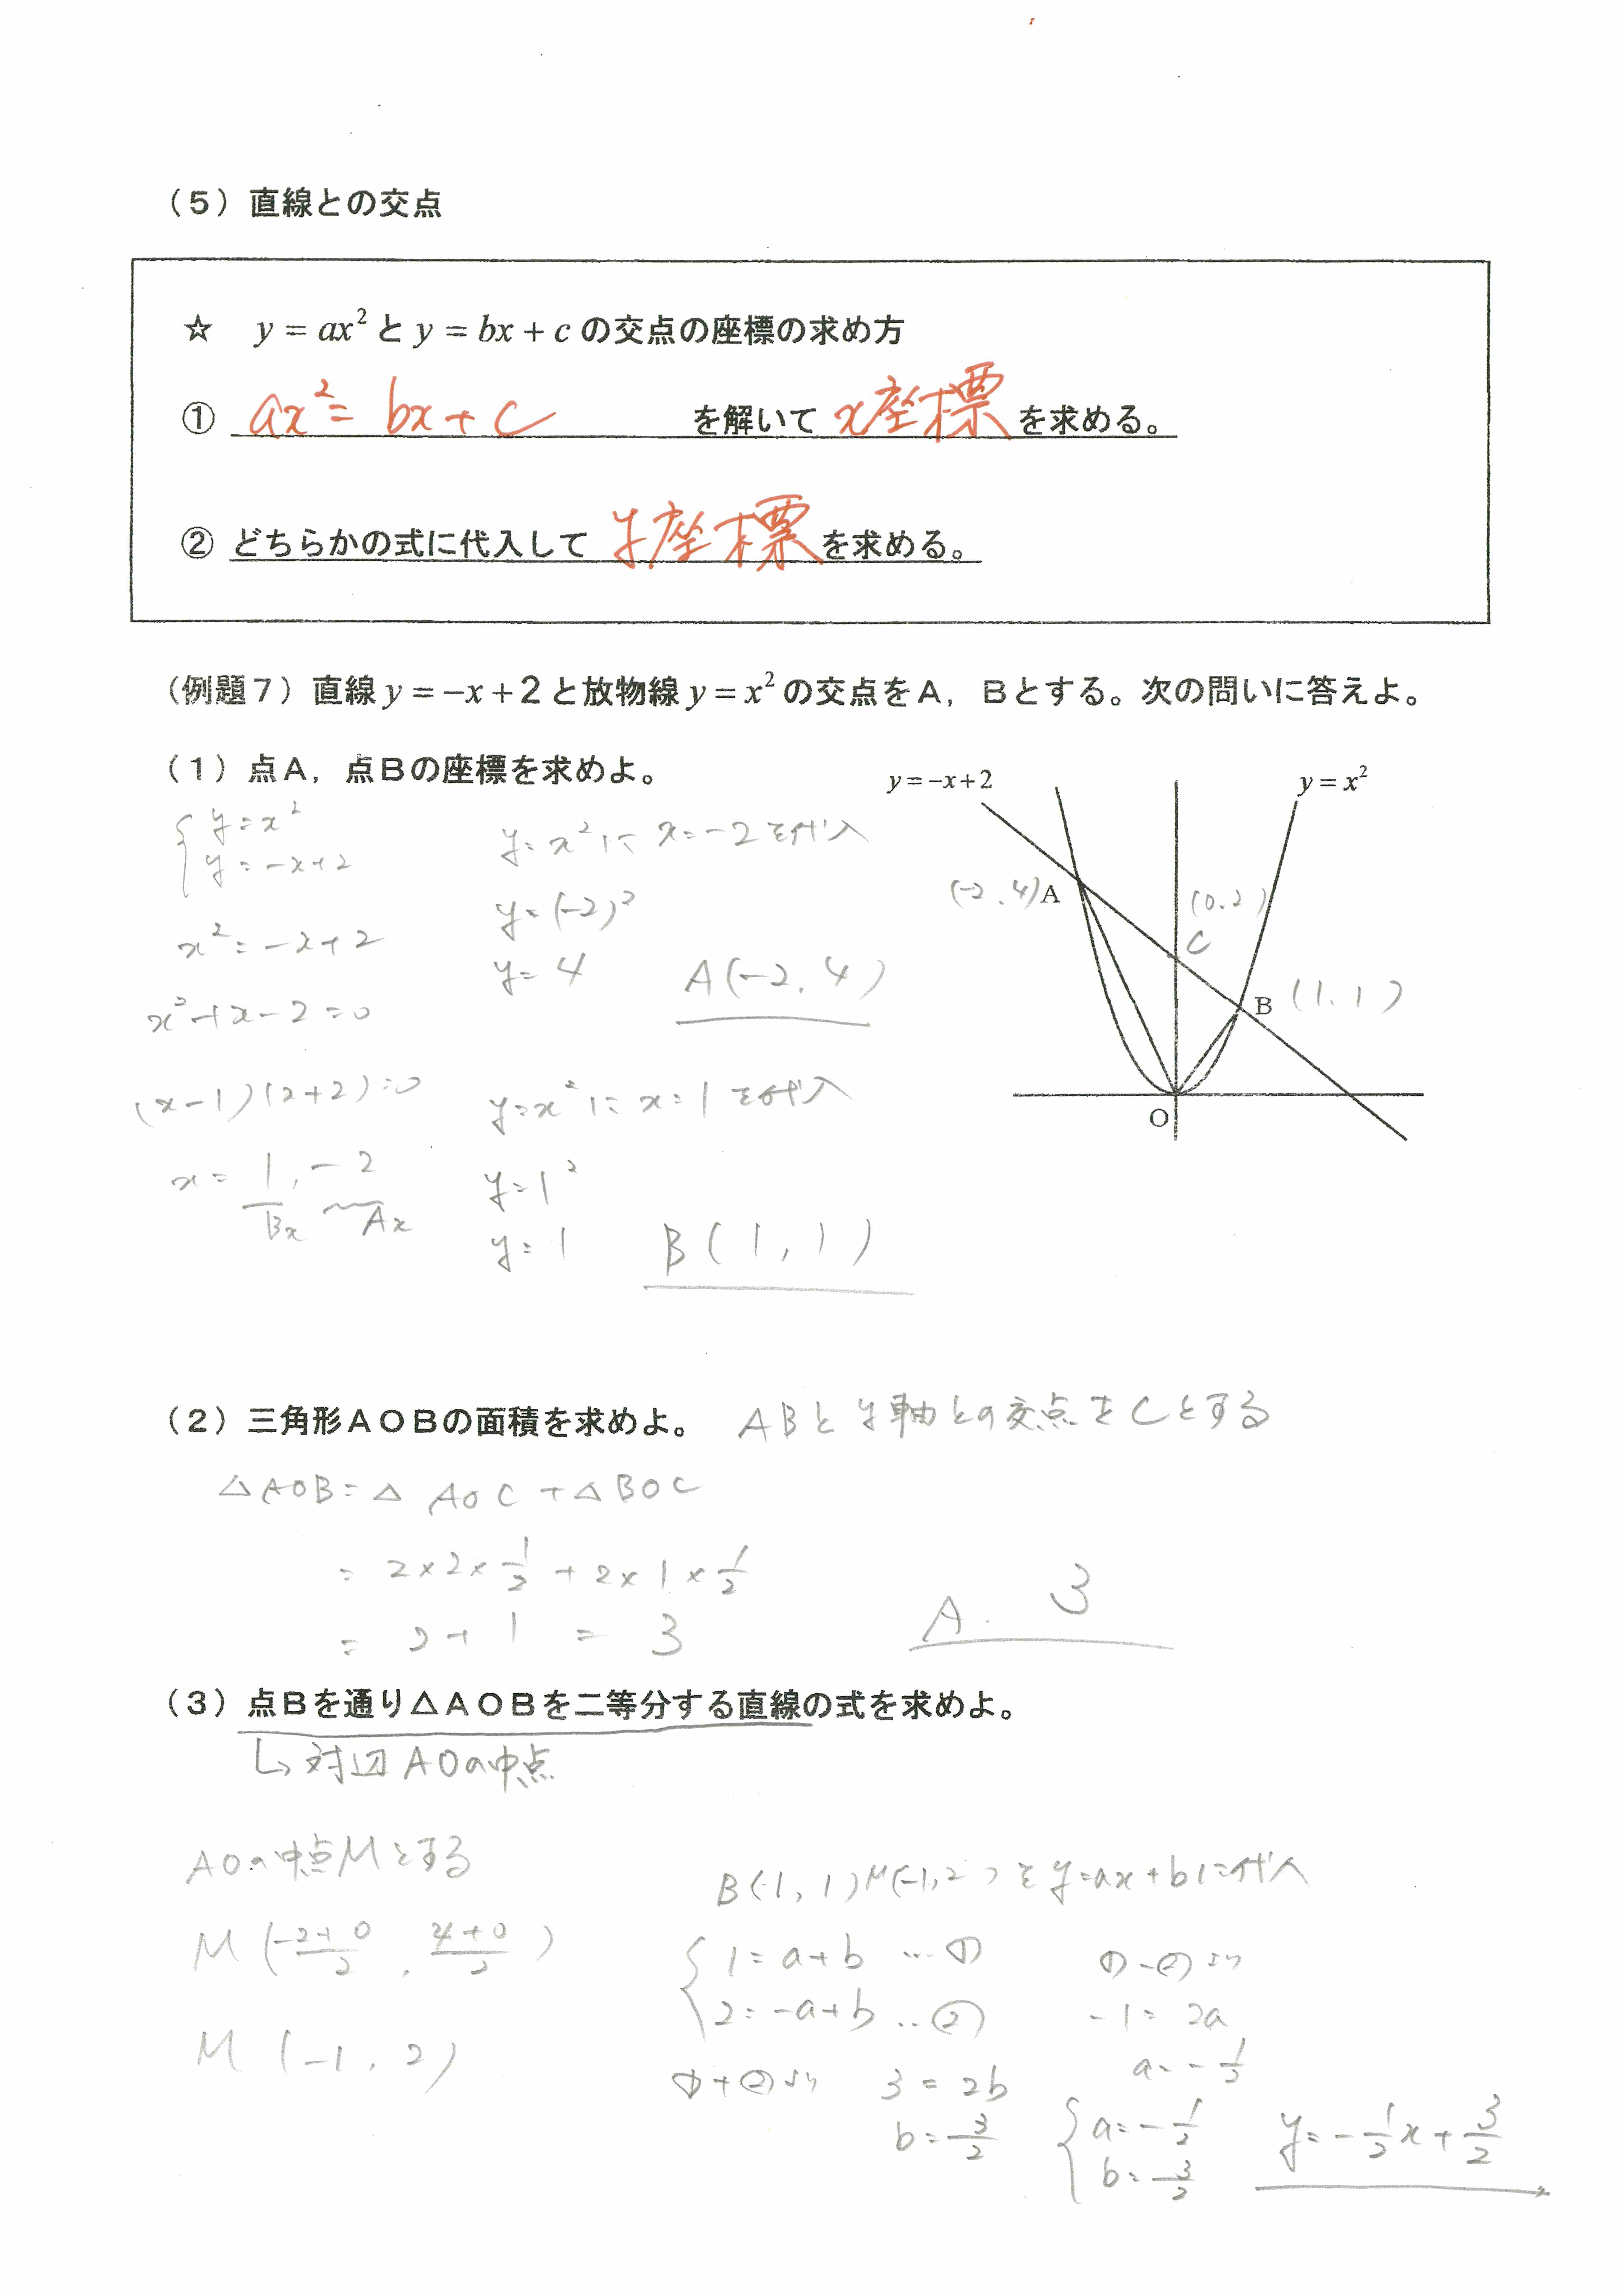 (5) 直線との交点
☆ y = ax² と y = bx + c の交点の座標の求め方
① ax² = bx + c を解いて x座標 を求める。
② どちらかの式に代入して y座標 を求める。
(例題7) 直線 y = −x + 2 と放物線 y = x² の交点をA, Bとする。次の問いに答えよ。
(1) 点A, 点Bの座標を求めよ。
y = x²
y = −x + 2
x² = −x + 2
x² + x − 2 = 0
(x − 1)(x + 2) = 0
x = 1, −2
Bx Ax
y = x² に x = −2 を代入
y = (−2)²
y = 4
A(−2, 4)
y = x² に x = 1 を代入
y = 1²
y = 1
B(1, 1)
y = −x + 2
y = x²
(−2, 4) A
(0, 2)
C
B (1, 1)
O
(2) 三角形AOBの面積を求めよ。 ABとy軸との交点をCとする
△AOB = △AOC + △BOC
= 2 × 2 × 1/2 + 2 × 1 × 1/2
= 2 + 1 = 3
A. 3
(3) 点Bを通り△AOBを二等分する直線の式を求めよ。
↳ 対辺AOの中点
AOの中点Mとする
M (−2+0/2, 4+0/2)
M (−1, 2)
B(1, 1) M(−1, 2) を y = ax + b に代入
1 = a + b … ①
2 = −a + b … ②
① + ② より 3 = 2b
b = 3/2
① − ② より
−1 = 2a
a = −1/2
a = −1/2
b = 3/2
y = −1/2 x + 3/2